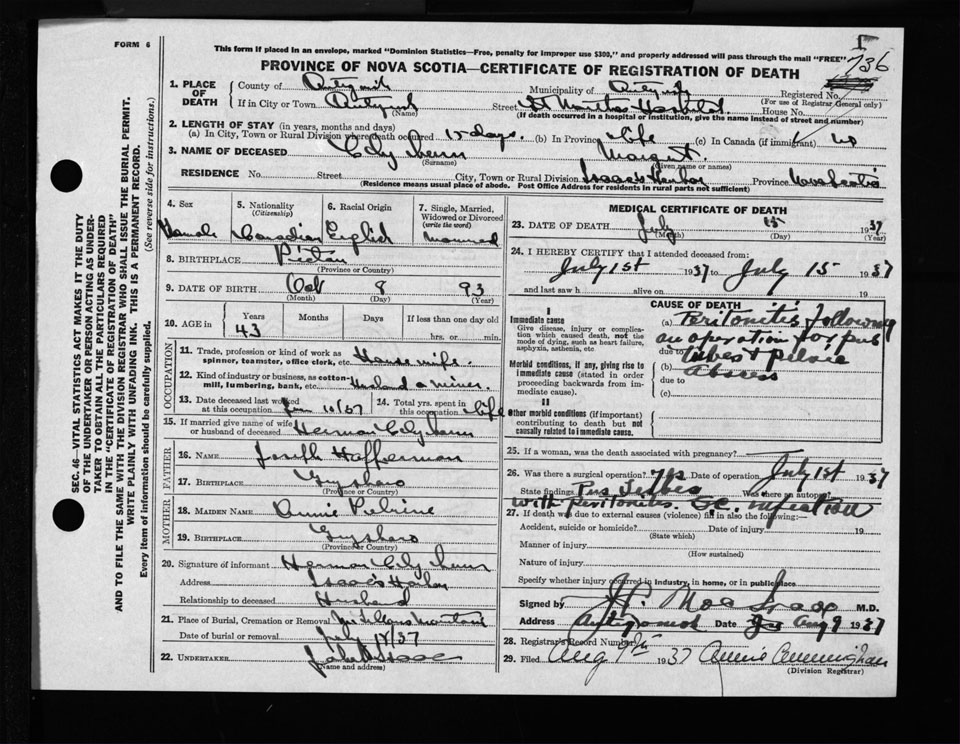 FORM 6
This form if placed in an envelope, marked "Dominion Statistics—Free, penalty for improper use $300," and properly addressed will pass through the mail "FREE"
736
PROVINCE OF NOVA SCOTIA—CERTIFICATE OF REGISTRATION OF DEATH
1. PLACE OF DEATH
County of
Municipality of
Registered No.
(For use of Registrar General only)
If in City or Town
(Name)
Street St Marthas Hospital House No.
(If death occurred in a hospital or institution, give the name instead of street and number)
2. LENGTH OF STAY (in years, months and days)
(a) In City, Town or Rural Division where death occurred 15 days. (b) In Province life (c) In Canada (if immigrant)
3. NAME OF DECEASED
(Surname)
Margret.
(Given name or names)
RESIDENCE No. Street City, Town or Rural Division Isaac's Harbor Province Nova Scotia
(Residence means usual place of abode. Post Office Address for residents in rural parts not sufficient)
4. Sex
Female
5. Nationality
(Citizenship)
Canadian
6. Racial Origin
English
7. Single, Married, Widowed or Divorced
(write the word)
Married
8. BIRTHPLACE
(Province or Country)
9. DATE OF BIRTH Oct 8 93
(Month) (Day) (Year)
10. AGE in
Years Months Days If less than one day old
43
hrs. or min.
OCCUPATION
11. Trade, profession or kind of work as spinner, teamster, office clerk, etc. House wife.
12. Kind of industry or business, as cotton-mill, lumbering, bank, etc. Husband a miner
13. Date deceased last worked at this occupation 10/37
14. Total yrs. spent in this occupation life
15. If married give name of wife or husband of deceased Herman
FATHER
16. NAME Joseph Hefferman
17. BIRTHPLACE Guysboro
(Province or Country)
MOTHER
18. MAIDEN NAME Annie
19. BIRTHPLACE Guysboro
(Province or Country)
20. Signature of informant Herman
Address Isaac's Harbor
Relationship to deceased Husband
21. Place of Burial, Cremation or Removal
Date of burial or removal July 18/37
22. UNDERTAKER
(Name and address)
MEDICAL CERTIFICATE OF DEATH
23. DATE OF DEATH July 15 1937
(Month) (Day) (Year)
24. I HEREBY CERTIFY that I attended deceased from:
July 1st 1937 to July 15 1937
and last saw h alive on 19
CAUSE OF DEATH
I
Immediate cause
Give disease, injury or complication which caused death, not the mode of dying, such as heart failure, asphyxia, asthenia, etc.
Morbid conditions, if any, giving rise to immediate cause (stated in order proceeding backwards from immediate cause).
II
Other morbid conditions (if important) contributing to death but not causally related to immediate cause.
(a) Peritonitis following
an operation for pus
due to tubes + Pelvic
(b) Abscess
due to
(c)
25. If a woman, was the death associated with pregnancy?
26. Was there a surgical operation? yes Date of operation July 1st 1937
State findings Pus Tubes Was there an autopsy
with peritonitis. G.C. infection
27. If death was due to external causes (violence) fill in also the following:—
Accident, suicide or homicide? Date of injury 19
(State which)
Manner of injury
(How sustained)
Nature of injury
Specify whether injury occurred in industry, in home, or in public place
Signed by M.D.
Address Antigonish Date Aug 9 1937
28. Registrar's Record Number
29. Filed Aug 9th 1937 Annie Cunningham
(Division Registrar)
SEC. 46—VITAL STATISTICS ACT MAKES IT THE DUTY
OF THE UNDERTAKER OR PERSON ACTING AS UNDER-
TAKER TO OBTAIN ALL THE PARTICULARS REQUIRED
IN THE "CERTIFICATE OF REGISTRATION OF DEATH"
AND TO FILE THE SAME WITH THE DIVISION REGISTRAR WHO SHALL ISSUE THE BURIAL PERMIT.
WRITE PLAINLY WITH UNFADING INK. THIS IS A PERMANENT RECORD.
Every item of information should be carefully supplied. (See reverse side for instructions.)